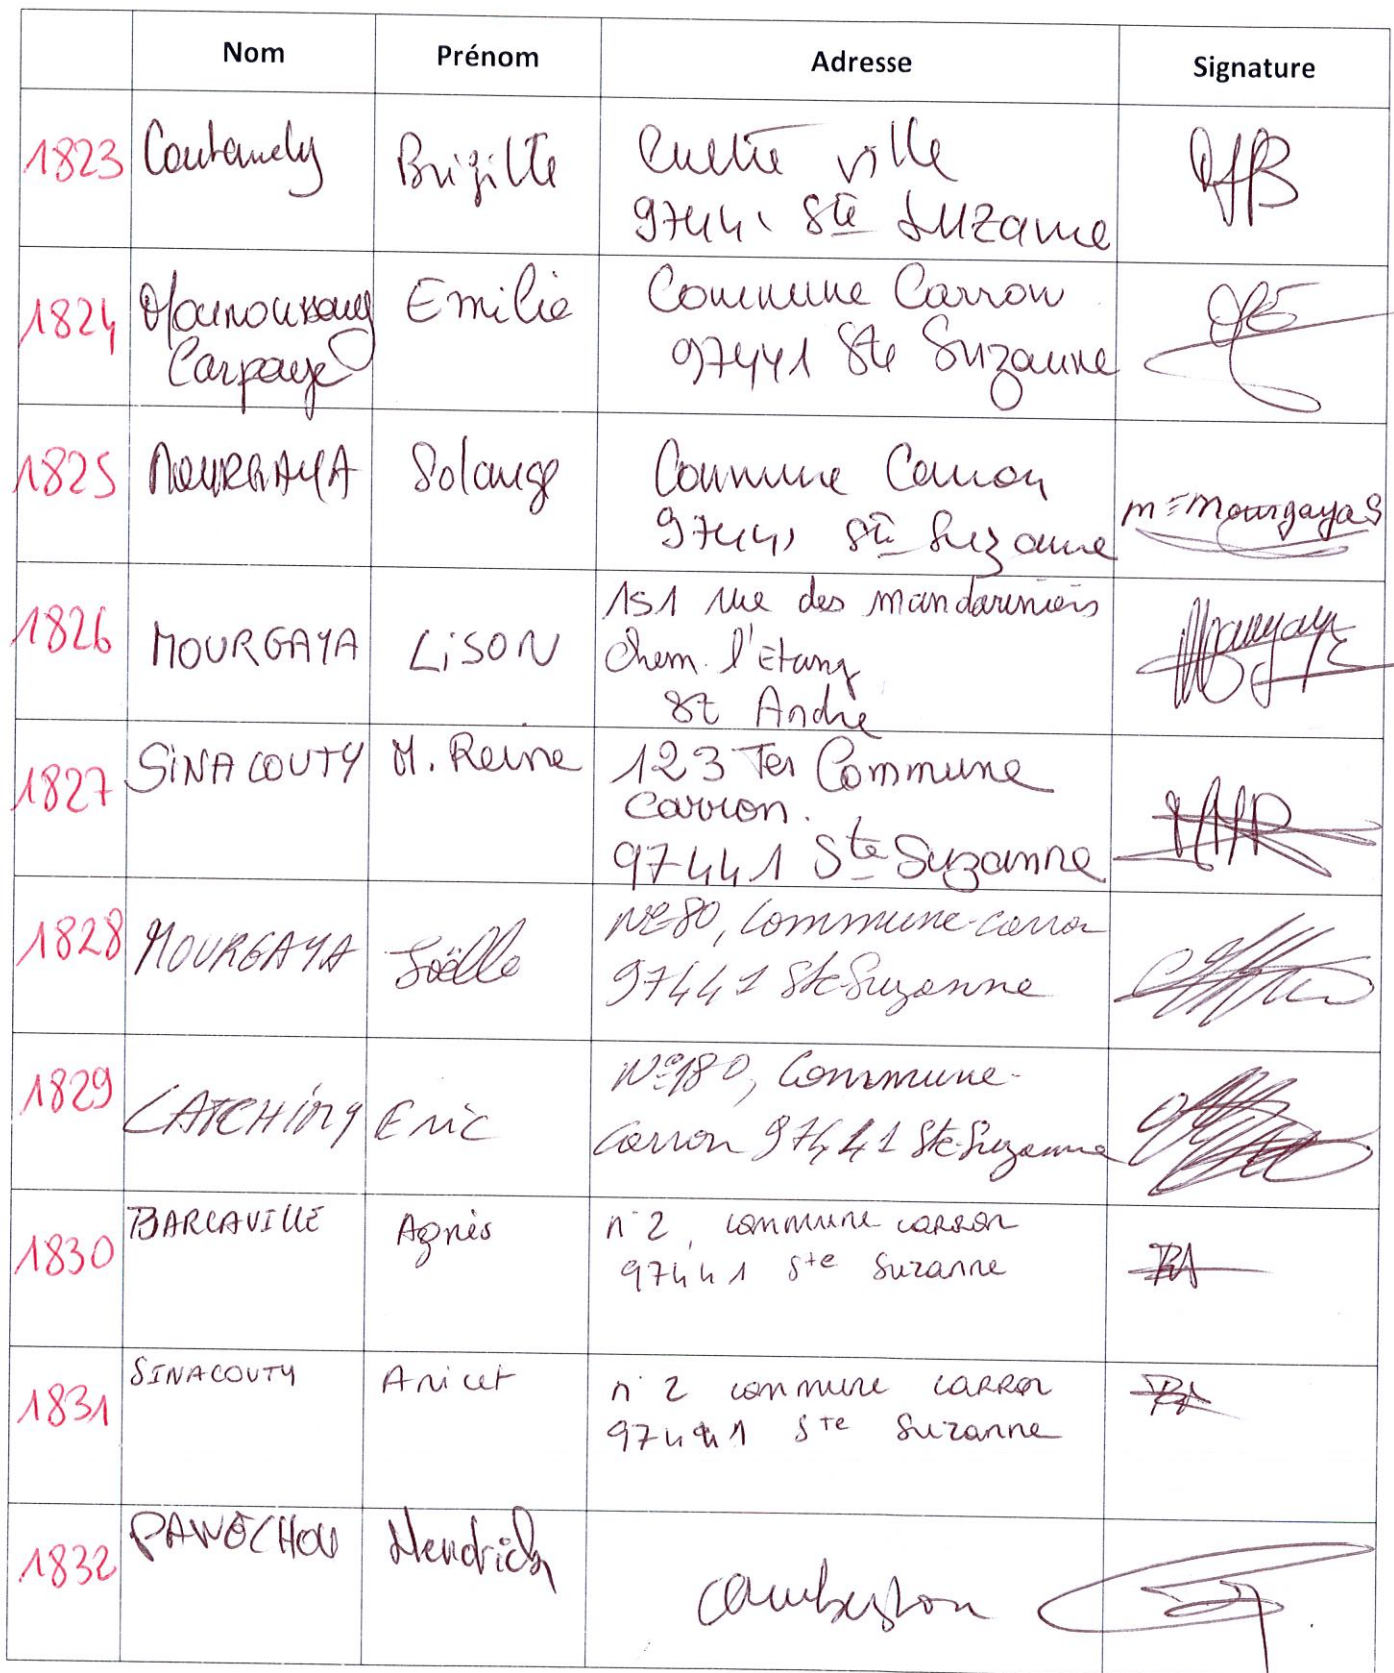 Nom Prénom Adresse Signature
1823 Brigitte ville
97441 Ste Suzanne
1824 Emilie Commune Carron
Carpaye 97441 Ste Suzanne
1825 MOURGAYA Solange Commune Carron
97441 Ste Suzanne
Mourgaya S
1826 MOURGAYA LiSON 151 rue des mandariniers
Chem. l'Etang
St André
1827 SiNACOUTY M. Reine 123 Ter Commune
Carron.
97441 Ste Suzanne
1828 MOURGAYA Joëlle N°80, Commune-Carron
97441 Ste-Suzanne
1829 LATCHiMY Eric N°180, Commune-
Carron 97441 Ste-Suzanne
1830 BARCAVILLE Agnès n°2, commune carron
97441 Ste Suzanne
1831 SINACOUTY Anicet n°2 commune carron
97441 Ste Suzanne
1832 PANECHOU Hendrick
Cambuston